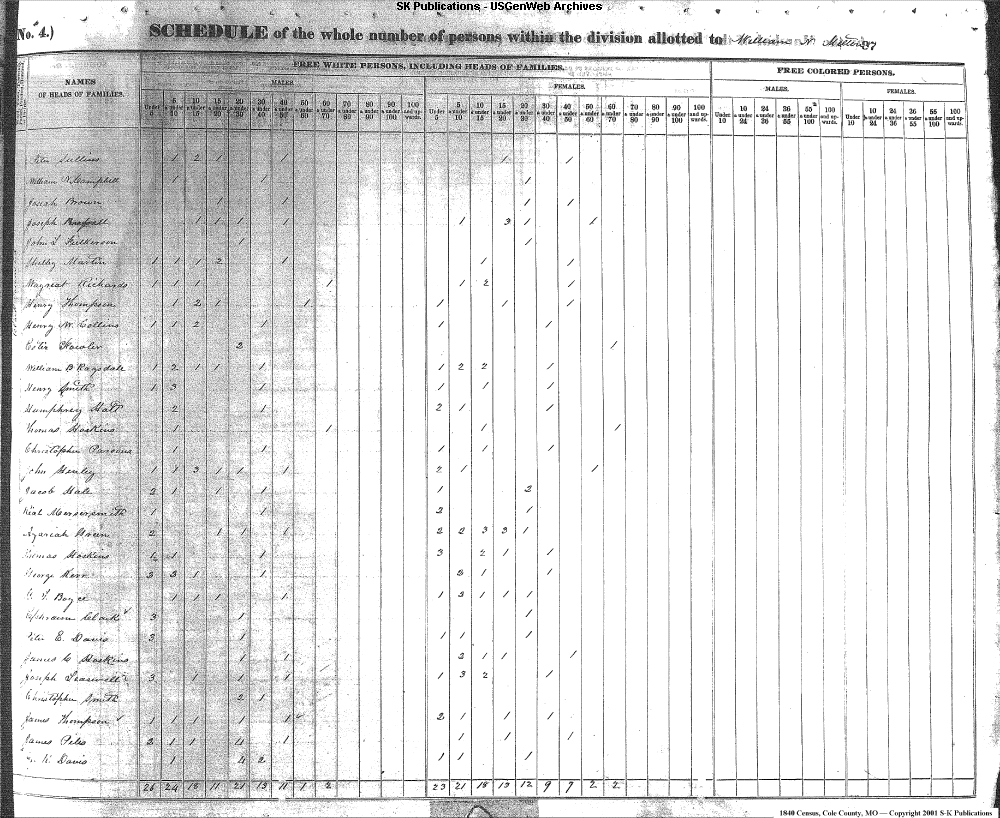 SK Publications - USGenWeb Archives
No. 4.) SCHEDULE of the whole number of persons within the division allotted to William
FREE WHITE PERSONS, INCLUDING HEADS OF FAMILIES. FREE COLORED PERSONS.
NAMES OF HEADS OF FAMILIES. MALES. FEMALES. MALES. FEMALES.
Under 5 5 & under 10 10 & under 15 15 & under 20 20 & under 30 30 & under 40 40 & under 50 50 & under 60 60 & under 70 70 & under 80 80 & under 90 90 & under 100 100 and upwards. Under 5 5 & under 10 10 & under 15 15 & under 20 20 & under 30 30 & under 40 40 & under 50 50 & under 60 60 & under 70 70 & under 80 80 & under 90 90 & under 100 100 and upwards. Under 10 10 & under 24 24 & under 36 36 & under 55 55 & under 100 100 and upwards. Under 10 10 & under 24 24 & under 36 36 & under 55 55 & under 100 100 and upwards.
Sullins 1 2 1 1 1 1
William Campbell 1 1 1
Josiah Brown 1 1 1 1
Joseph 1 1 1 1 1 3 1 1
John L Fulkerson 1 1
Martin 1 1 1 2 1 1 1
Richards 1 1 1 1 1 2 1
Henry Thompson 1 2 1 1 1 1 1
Henry W. Collins 1 1 2 1 1 1
Fowler 2 1
William B Ragsdale 1 2 1 1 1 1 2 2 1
Henry Smith 1 3 1 1 1 1
Humphrey 2 1 2 1 1
Thomas Hoskins 1 1 1 1
Christopher Parsons 1 1 1 1 1
John Henley 1 1 3 1 1 1 2 1 1
Jacob Hale 2 1 1 1 1 2
Messersmith 1 1 2 1
Azariah 2 1 1 1 2 2 3 3 1
Thomas Hoskins 1 1 1 3 2 1 1
George Kerr 3 3 1 1 3 1 1
Boyce 1 1 1 1 1 3 1 1 1
Ephraim Clark 3 1 1
E. Davis 3 1 1 1 1
James C Hoskins 1 1 2 1 1 1
Joseph 3 1 1 1 1 3 2 1
Christopher Smith 2 1
James Thompson 1 1 1 1 1 2 1 1 1
James 2 1 1 4 1 1 1 1
Davis 1 4 2 1 1 1
26 24 18 11 21 13 11 1 2 23 21 18 13 12 9 7 2 2
1840 Census, Cole County, MO — Copyright 2001 S-K Publications